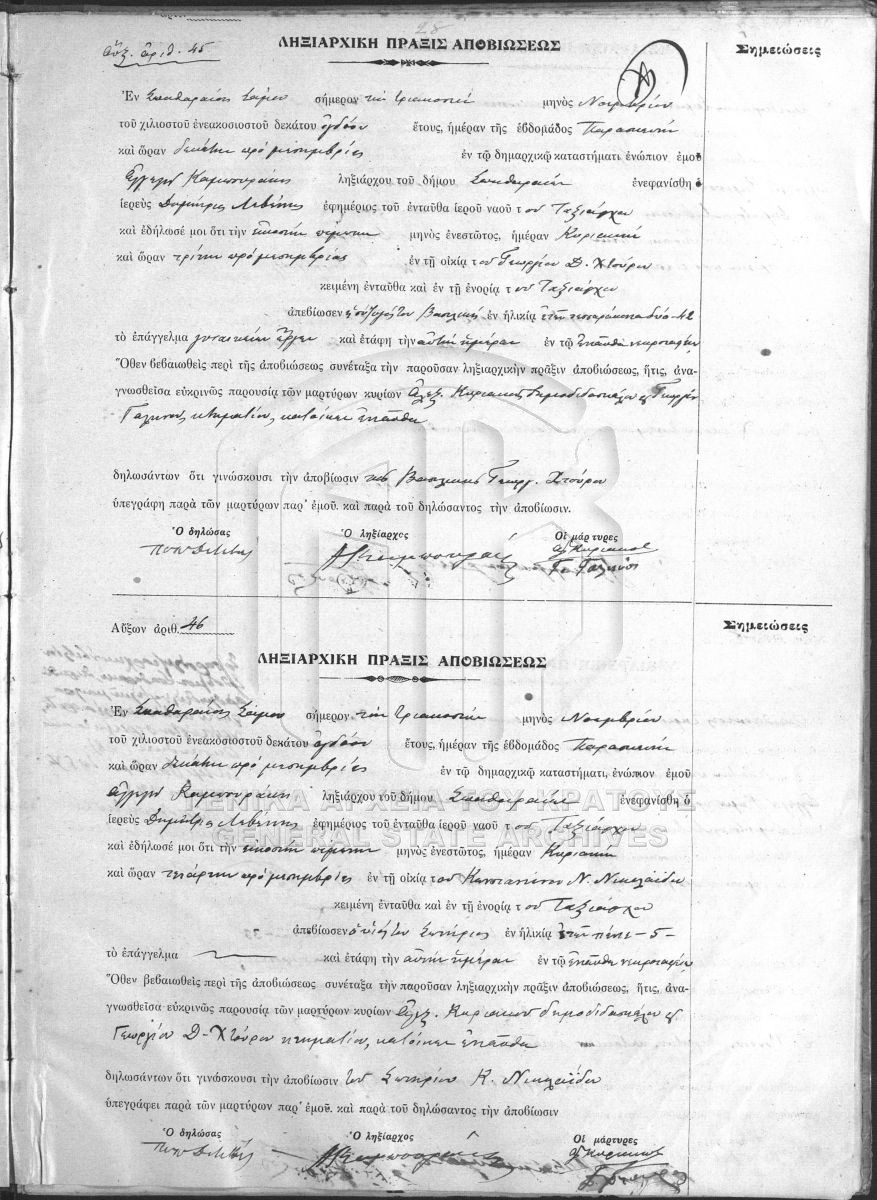 28
αὔξ. ἀριθ. 45
ΛΗΞΙΑΡΧΙΚΗ ΠΡΑΞΙΣ ΑΠΟΒΙΩΣΕΩΣ
Σημειώσεις
Ἐν Σπαθαραίοις Σάμου σήμερον τὴν τριακοστὴν μηνὸς Νοεμβρίου
τοῦ χιλιοστοῦ ἐνεακοσιοστοῦ δεκάτου ὀγδόου ἔτους, ἡμέραν τῆς ἑβδομάδος Παρασκευὴν
καὶ ὥραν δεκάτην πρὸ μεσημβρίας ἐν τῷ δημαρχικῷ καταστήματι ἐνώπιον ἐμοῦ
Ἀγγελῆ Καμπουράκη ληξιάρχου τοῦ δήμου Σπαθαραίων ἐνεφανίσθη ὁ
ἱερεὺς Δημήτριος ἐφημέριος τοῦ ἐνταῦθα ἱεροῦ ναοῦ τοῦ Ταξιάρχου
καὶ ἐδήλωσέ μοι ὅτι τὴν εἰκοστὴν πέμπτην μηνὸς ἐνεστῶτος, ἡμέραν Κυριακὴν
καὶ ὥραν τρίτην πρὸ μεσημβρίας ἐν τῇ οἰκίᾳ τοῦ Γεωργίου Δ. Χτούρου
κειμένῃ ἐνταῦθα καὶ ἐν τῇ ἐνορίᾳ τοῦ Ταξιάρχου
ἀπεβίωσεν ἡ σύζυγός του Βασιλικὴ ἐν ἡλικίᾳ ἐτῶν τεσσαράκοντα δύο - 42
τὸ ἐπάγγελμα γυναικεῖα ἔργα καὶ ἐτάφη τὴν αὐτὴν ἡμέραν ἐν τῷ ἐνταῦθα νεκροταφείῳ
Ὅθεν βεβαιωθεὶς περὶ τῆς ἀποβιώσεως συνέταξα τὴν παροῦσαν ληξιαρχικὴν πρᾶξιν ἀποβιώσεως, ἥτις, ἀνα-
γνωσθεῖσα εὐκρινῶς παρουσίᾳ τῶν μαρτύρων κυρίων Ἀλεξ. Κυριακοῦ δημοδιδασκάλου καὶ Γεωργίου
κτηματίου, κατοίκων ἐνταῦθα
δηλωσάντων ὅτι γινώσκουσι τὴν ἀποβίωσιν τῆς Βασιλικῆς Γεωργ. Χτούρου
ὑπεγράφη παρὰ τῶν μαρτύρων παρ' ἐμοῦ. καὶ παρὰ τοῦ δηλώσαντος τὴν ἀποβίωσιν.
Ὁ δηλώσας Ὁ ληξίαρχος Οἱ μάρτυρες
Αλ. Κυριακοῦ
Αὔξων ἀριθ. 46
Σημειώσεις
ΛΗΞΙΑΡΧΙΚΗ ΠΡΑΞΙΣ ΑΠΟΒΙΩΣΕΩΣ
Ἐν Σπαθαραίοις Σάμου σήμερον τὴν τριακοστὴν μηνὸς Νοεμβρίου
τοῦ χιλιοστοῦ ἐνεακοσιοστοῦ δεκάτου ὀγδόου ἔτους, ἡμέραν τῆς ἑβδομάδος Παρασκευὴν
καὶ ὥραν δεκάτην πρὸ μεσημβρίας ἐν τῷ δημαρχικῷ καταστήματι, ἐνώπιον ἐμοῦ
Ἀγγελῆ Καμπουράκη ληξιάρχου τοῦ δήμου Σπαθαραίων ἐνεφανίσθη ὁ
ΓΕΝΙΚΑ ΑΡΧΕΙΑ ΤΟΥ ΚΡΑΤΟΥΣ
ἱερεὺς Δημήτριος ἐφημέριος τοῦ ἐνταῦθα ἱεροῦ ναοῦ τοῦ Ταξιάρχου
GENERAL STATE ARCHIVES
καὶ ἐδήλωσέ μοι ὅτι τὴν εἰκοστὴν πέμπτην μηνὸς ἐνεστῶτος, ἡμέραν Κυριακὴν
καὶ ὥραν τετάρτην πρὸ μεσημβρίας ἐν τῇ οἰκίᾳ τοῦ Κωνσταντίνου Ν. Νικολαΐδου
κειμένῃ ἐνταῦθα καὶ ἐν τῇ ἐνορίᾳ τοῦ Ταξιάρχου
ἀπεβίωσεν ὁ υἱός του Σωτήριος ἐν ἡλικίᾳ ἐτῶν πέντε - 5 -
τὸ ἐπάγγελμα καὶ ἐτάφη τὴν αὐτὴν ἡμέραν ἐν τῷ ἐνταῦθα νεκροταφείῳ
Ὅθεν βεβαιωθεὶς περὶ τῆς ἀποβιώσεως συνέταξα τὴν παροῦσαν ληξιαρχικὴν πρᾶξιν ἀποβιώσεως, ἥτις, ἀνα-
γνωσθεῖσα εὐκρινῶς παρουσίᾳ τῶν μαρτύρων κυρίων Ἀλεξ. Κυριακοῦ δημοδιδασκάλου καὶ
Γεωργίου Δ. Χτούρου κτηματίου, κατοίκων ἐνταῦθα
δηλωσάντων ὅτι γινώσκουσι τὴν ἀποβίωσιν τοῦ Σωτηρίου Κ. Νικολαΐδου
ὑπεγράφει παρὰ τῶν μαρτύρων παρ' ἐμοῦ. καὶ παρὰ τοῦ δηλώσαντος τὴν ἀποβίωσιν
Ὁ δηλώσας Ὁ ληξίαρχος Οἱ μάρτυρες
Αλ. Κυριακοῦ